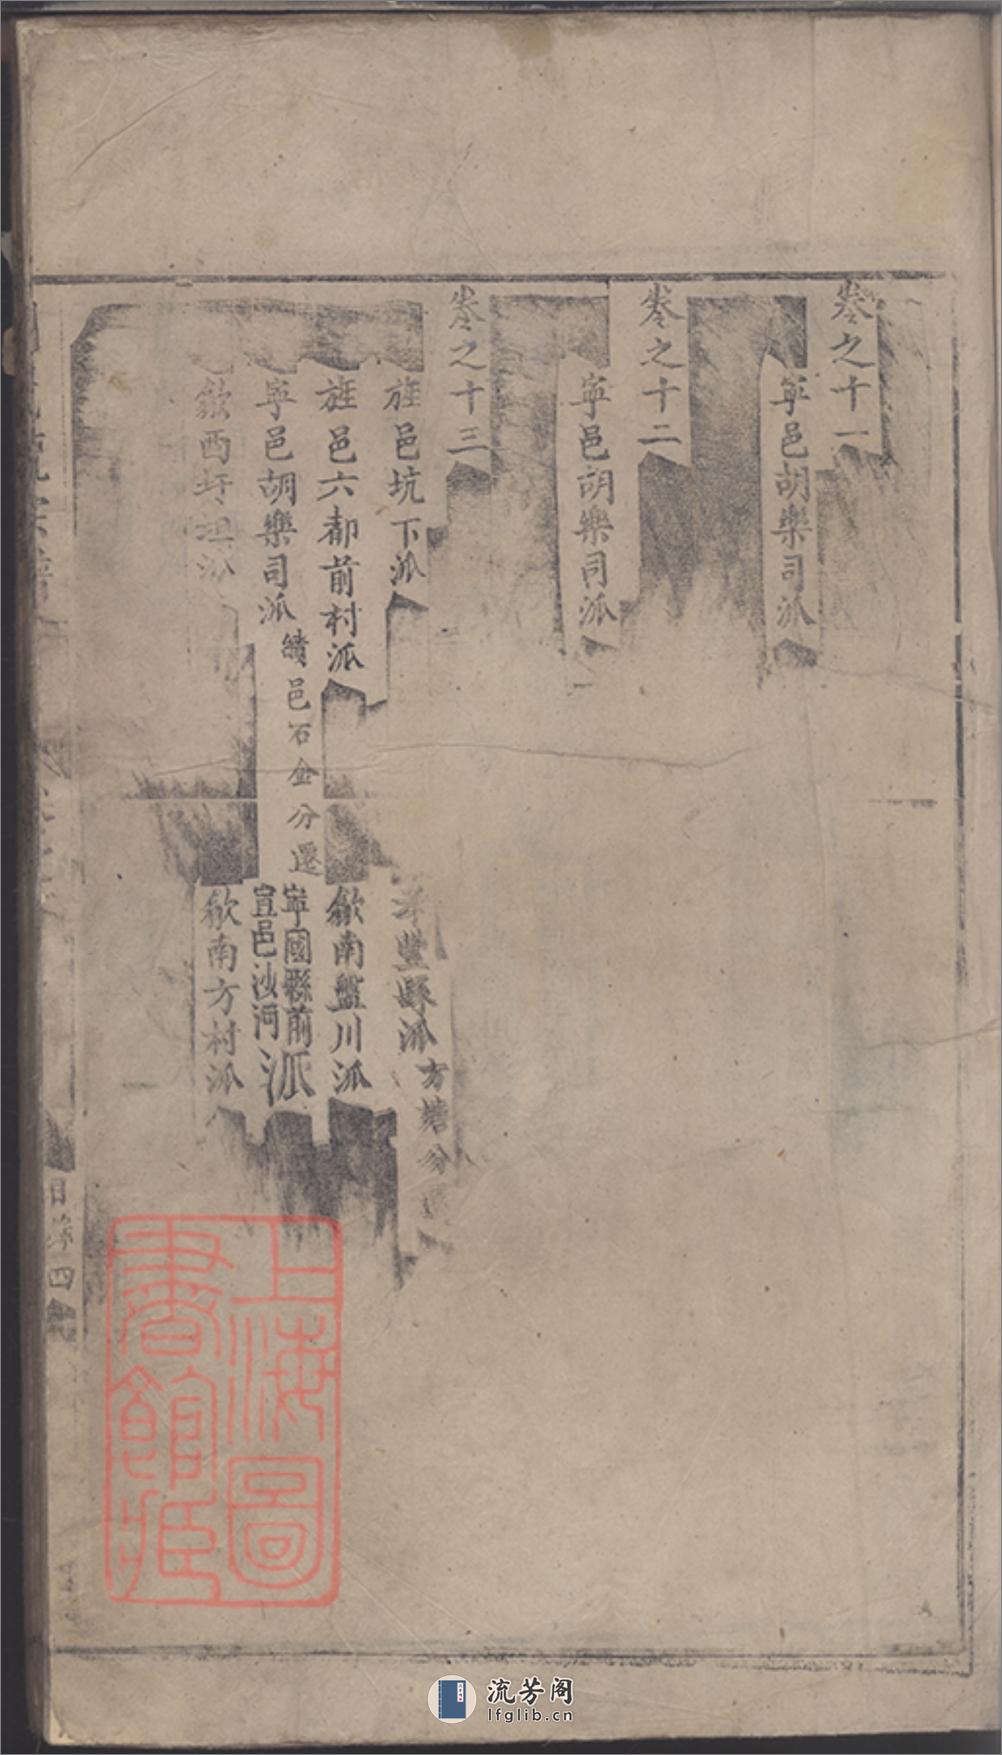 卷之十一
寧邑胡樂司派
卷之十二
寧邑胡樂司派
卷之十三
旌邑坑下派
豐縣派 方塘分
旌邑六都前村派
歙南盤川派
寧邑胡樂司派 績邑石金分遷
寧國縣前
宣邑沙河
派
歙西圩坦派
歙南方村派
目錄 四
上海圖
書館藏
流芳阁
lfglib.cn